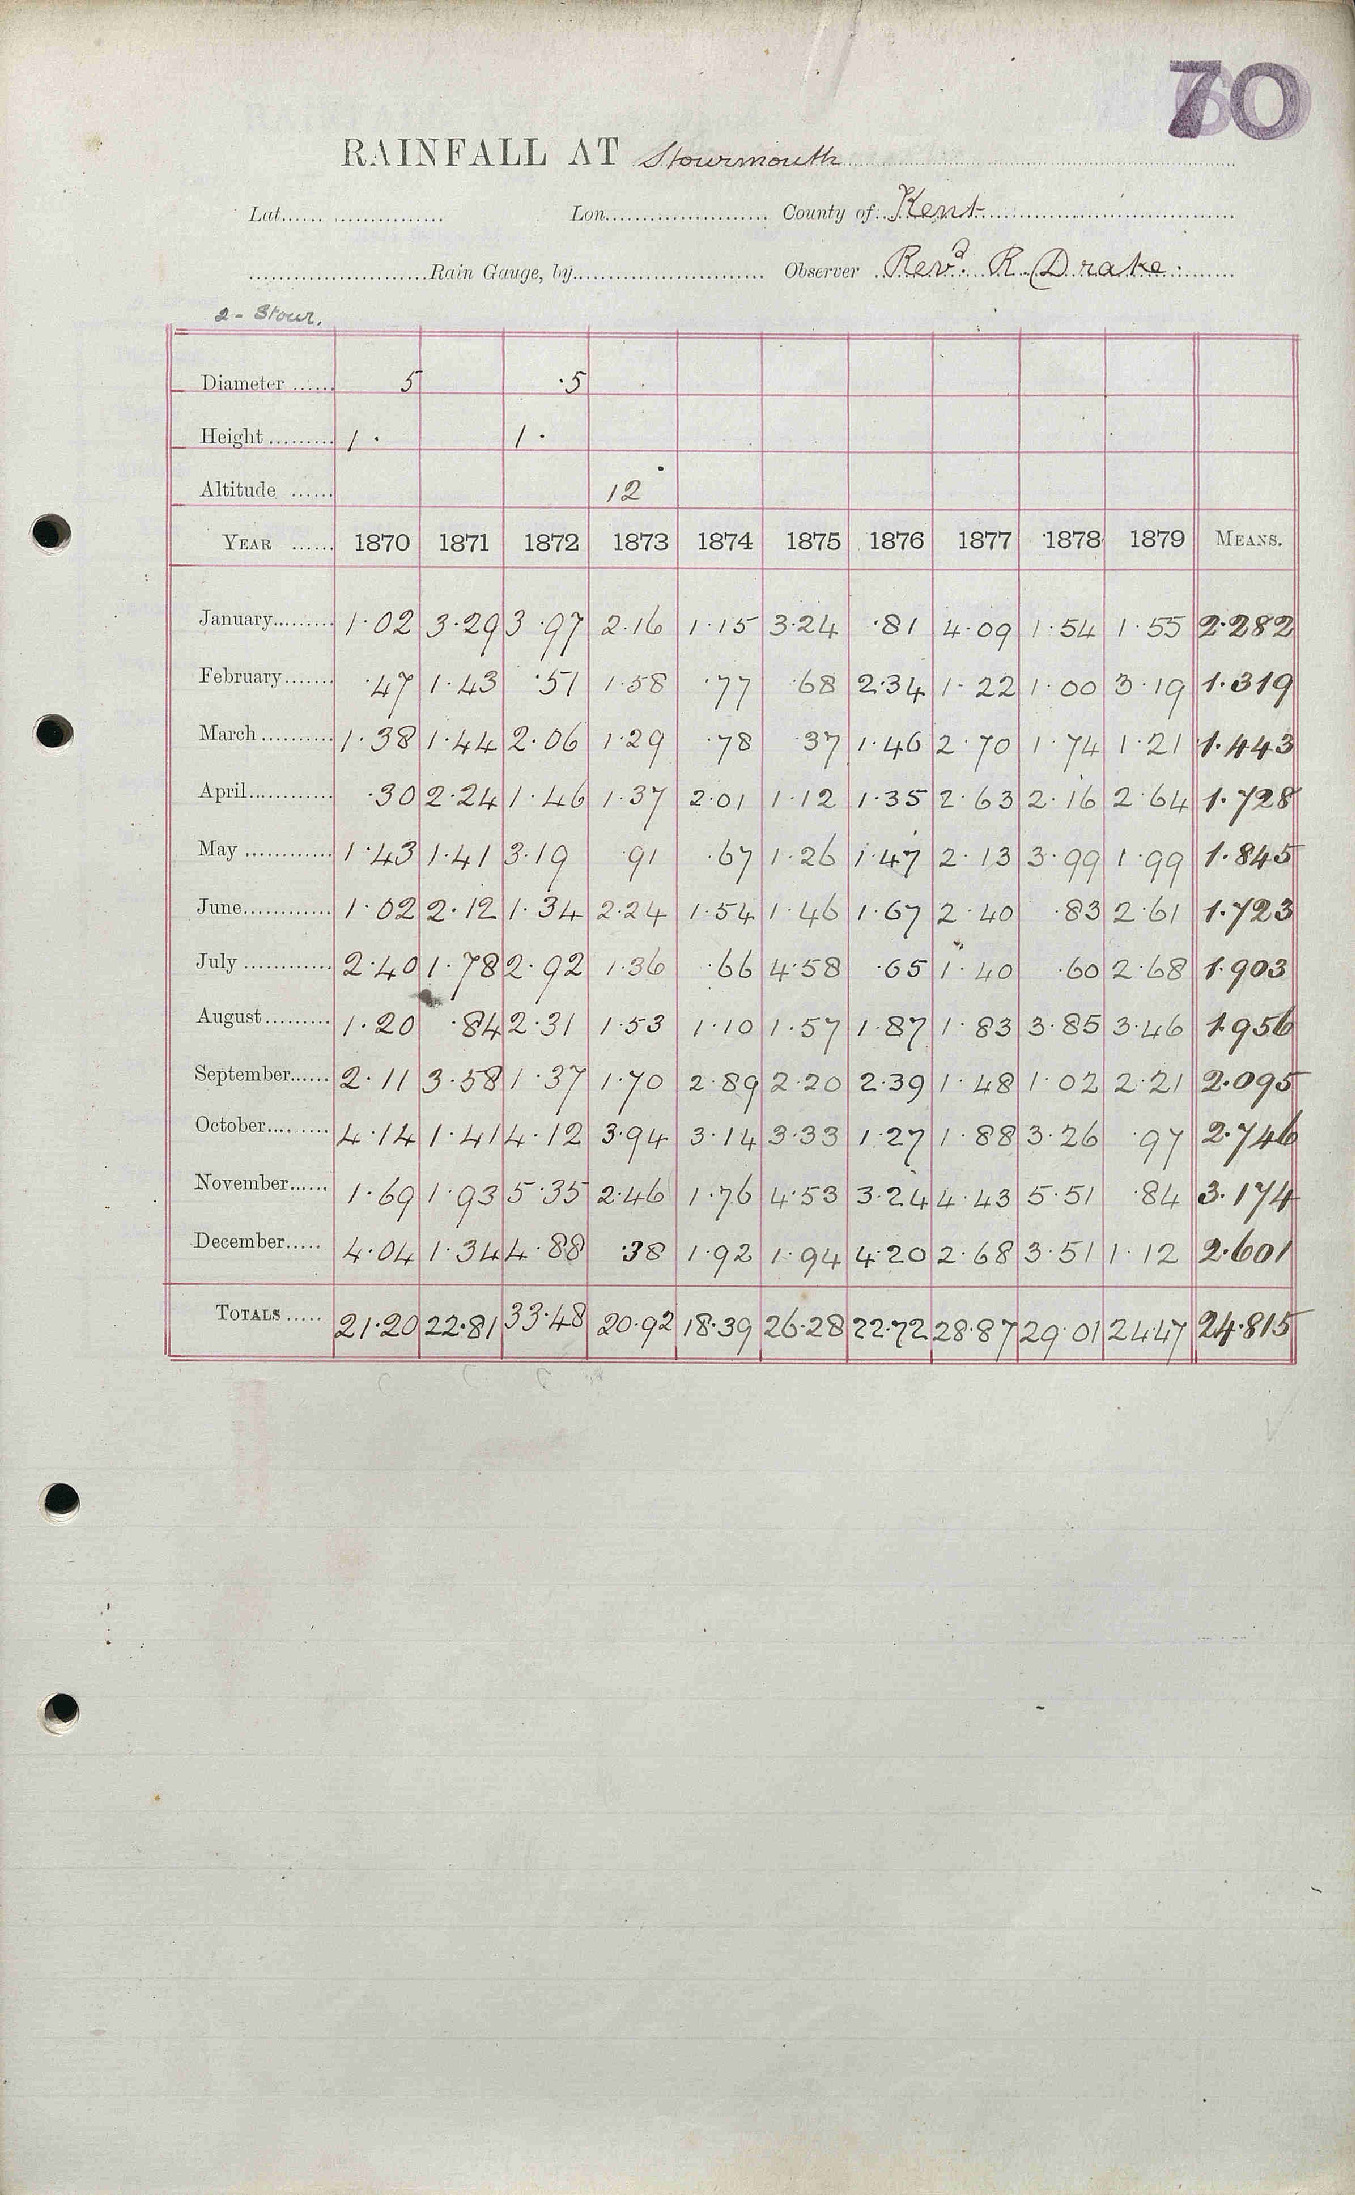 70
RAINFALL AT Stourmouth
Lat. Lon. County of Kent
Rain Gauge, by Observer Revd. R. Drake.
2 - Stour.
Diameter 5 5
Height 1. 1.
Altitude 12
YEAR 1870 1871 1872 1873 1874 1875 1876 1877 1878 1879 MEANS.
January 1.02 3.29 3.97 2.16 1.15 3.24 .81 4.09 1.54 1.55 2.282
February .47 1.43 .51 1.58 .77 .68 2.34 1.22 1.00 3.19 1.319
March 1.38 1.44 2.06 1.29 .78 .37 1.46 2.70 1.74 1.21 1.443
April .30 2.24 1.46 1.37 2.01 1.12 1.35 2.63 2.16 2.64 1.728
May 1.43 1.41 3.19 .91 .67 1.26 1.47 2.13 3.99 1.99 1.845
June 1.02 2.12 1.34 2.24 1.54 1.46 1.67 2.40 .83 2.61 1.723
July 2.40 1.78 2.92 1.36 .66 4.58 .65 1.40 .60 2.68 1.903
August 1.20 .84 2.31 1.53 1.10 1.57 1.87 1.83 3.85 3.46 1.956
September 2.11 3.58 1.37 1.70 2.89 2.20 2.39 1.48 1.02 2.21 2.095
October 4.14 1.41 4.12 3.94 3.14 3.33 1.27 1.88 3.26 .97 2.746
November 1.69 1.93 5.35 2.46 1.76 4.53 3.24 4.43 5.51 .84 3.174
December 4.04 1.34 4.88 .38 1.92 1.94 4.20 2.68 3.51 1.12 2.601
TOTALS 21.20 22.81 33.48 20.92 18.39 26.28 22.72 28.87 29.01 24.47 24.815